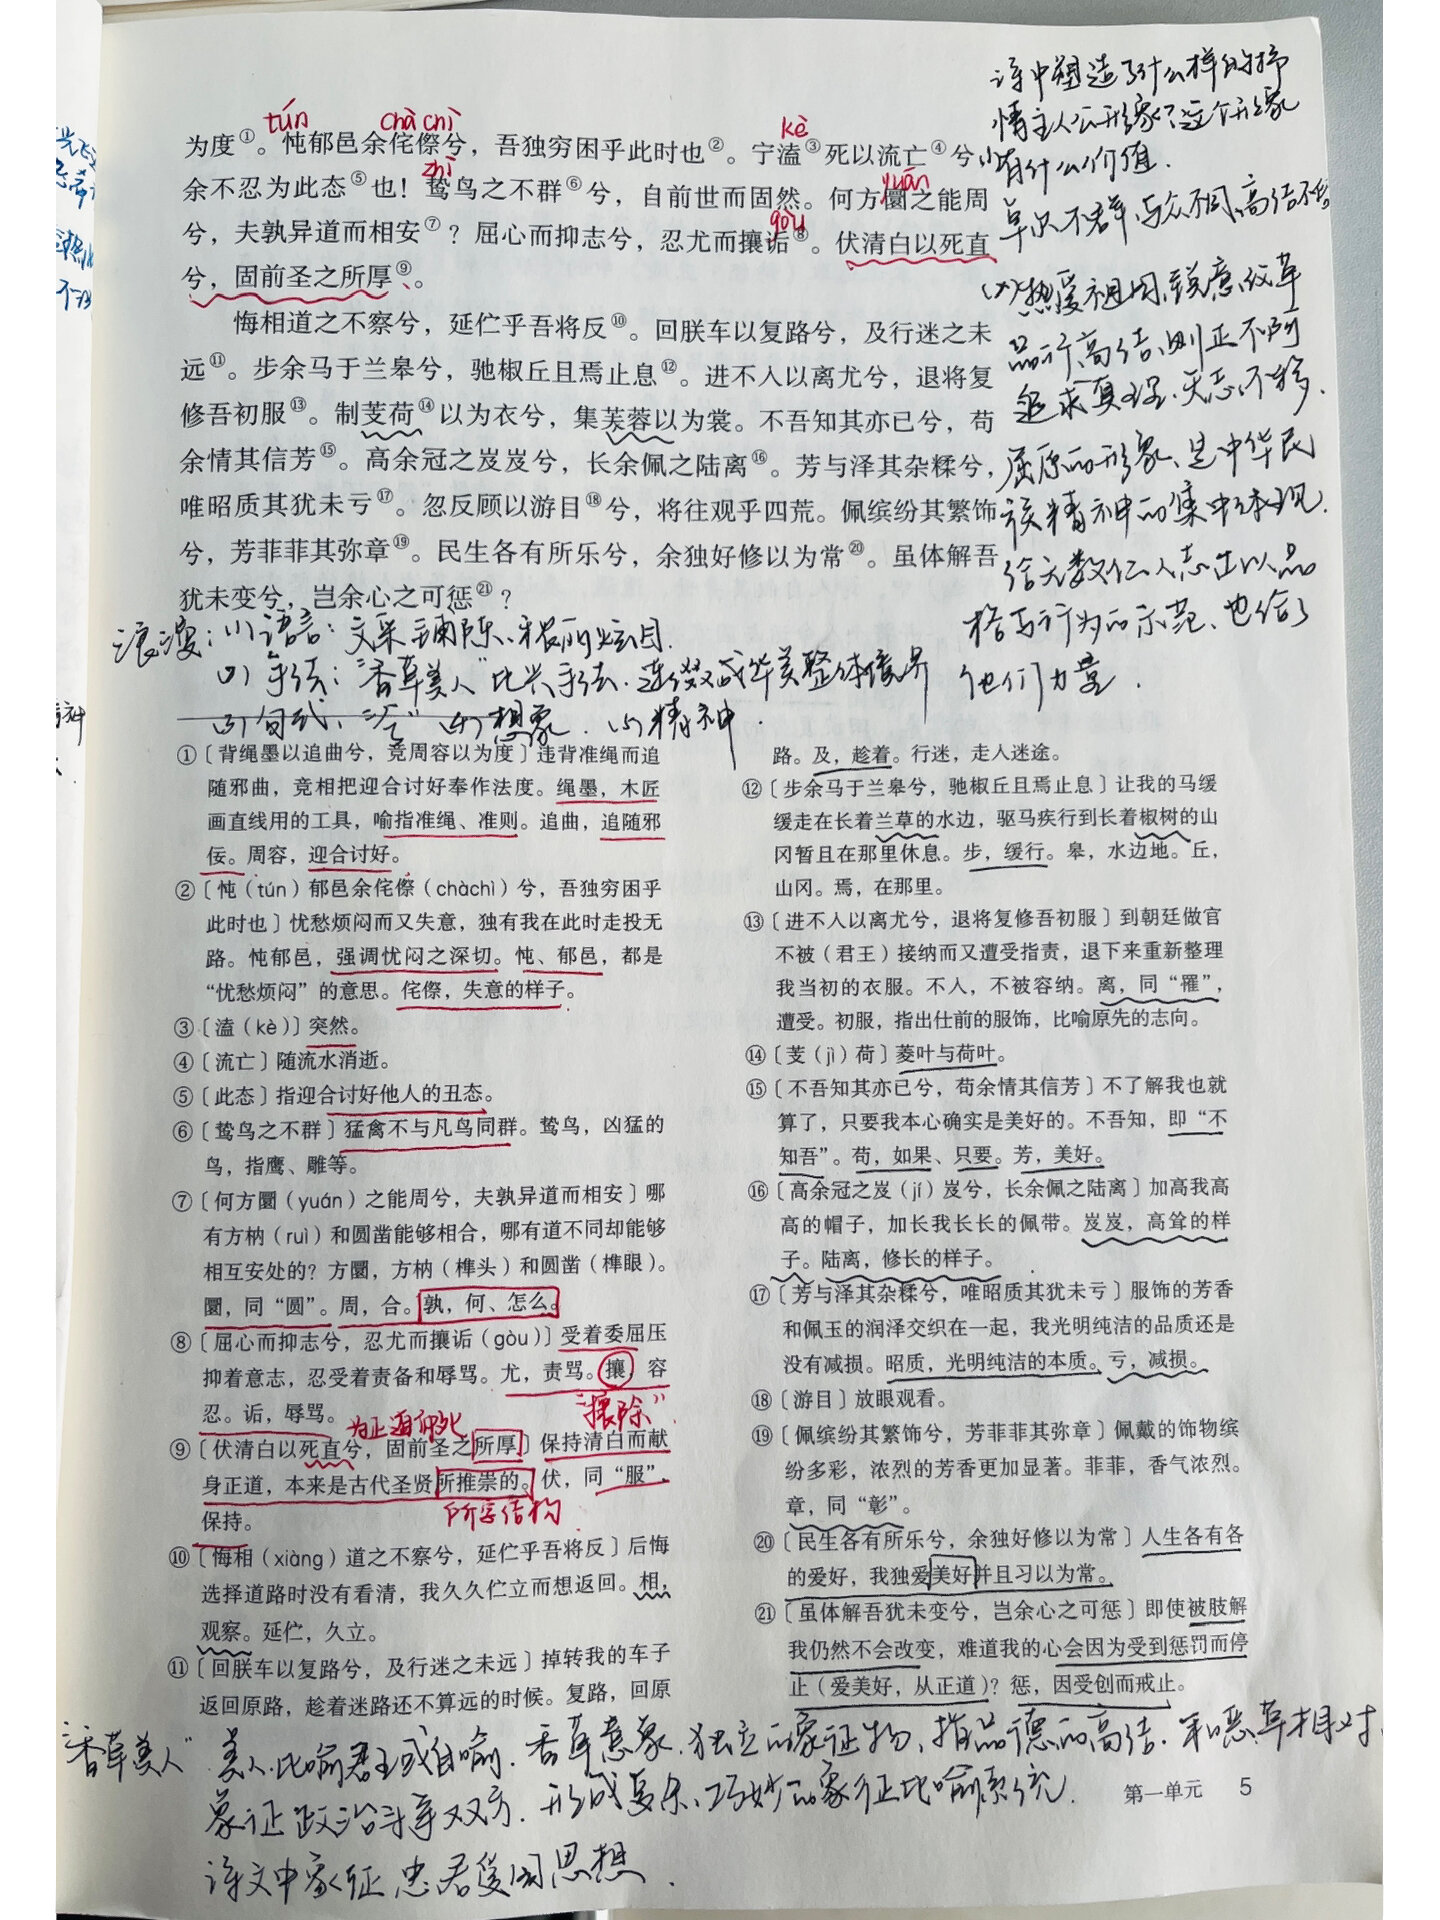 诗中塑造了什么样的抒
情主人公形象？这个形象
有什么价值.
卓尔不群,与众不同,高洁不
热爱祖国,锐意改革
品行高洁、刚正不阿
追求真理、矢志不移.
屈原的形象、是中华民
族精神的集中体现.
给无数仁人志士以品
格与行为的示范、也给了
他们力量.
tún chà chì kè
为度①。忳郁邑余侘傺兮，吾独穷困乎此时也②。宁溘③死以流亡④兮，
zhì yuán
余不忍为此态⑤也！鸷鸟之不群⑥兮，自前世而固然。何方圜之能周
gòu
兮，夫孰异道而相安⑦？屈心而抑志兮，忍尤而攘诟⑧。伏清白以死直
兮，固前圣之所厚⑨。
悔相道之不察兮，延伫乎吾将反⑩。回朕车以复路兮，及行迷之未
远⑪。步余马于兰皋兮，驰椒丘且焉止息⑫。进不入以离尤兮，退将复
修吾初服⑬。制芰荷⑭以为衣兮，集芙蓉以为裳。不吾知其亦已兮，苟
余情其信芳⑮。高余冠之岌岌兮，长余佩之陆离⑯。芳与泽其杂糅兮，
唯昭质其犹未亏⑰。忽反顾以游目⑱兮，将往观乎四荒。佩缤纷其繁饰
兮，芳菲菲其弥章⑲。民生各有所乐兮，余独好修以为常⑳。虽体解吾
犹未变兮，岂余心之可惩㉑？
浪漫：(1)语言：文采铺陈、秾丽炫目.
(2)手法："香草美人"比兴手法.连缀成华美整体境界
(3)句式："兮" (4)想象. (5)精神.
①〔背绳墨以追曲兮，竞周容以为度〕违背准绳而追
随邪曲，竞相把迎合讨好奉作法度。绳墨，木匠
画直线用的工具，喻指准绳、准则。追曲，追随邪
佞。周容，迎合讨好。
②〔忳（tún）郁邑余侘傺（chàchì）兮，吾独穷困乎
此时也〕忧愁烦闷而又失意，独有我在此时走投无
路。忳郁邑，强调忧闷之深切。忳、郁邑，都是
“忧愁烦闷”的意思。侘傺，失意的样子。
③〔溘（kè）〕突然。
④〔流亡〕随流水消逝。
⑤〔此态〕指迎合讨好他人的丑态。
⑥〔鸷鸟之不群〕猛禽不与凡鸟同群。鸷鸟，凶猛的
鸟，指鹰、雕等。
⑦〔何方圜（yuán）之能周兮，夫孰异道而相安〕哪
有方枘（ruì）和圆凿能够相合，哪有道不同却能够
相互安处的？方圜，方枘（榫头）和圆凿（榫眼）。
圜，同“圆”。周，合。孰，何、怎么。
⑧〔屈心而抑志兮，忍尤而攘诟（gòu）〕受着委屈压
抑着意志，忍受着责备和辱骂。尤，责骂。攘，容
忍。诟，辱骂。
为正道而死 "攘除".
⑨〔伏清白以死直兮，固前圣之所厚〕保持清白而献
身正道，本来是古代圣贤所推崇的。伏，同“服”，
保持。
所字结构.
⑩〔悔相（xiàng）道之不察兮，延伫乎吾将反〕后悔
选择道路时没有看清，我久久伫立而想返回。相，
观察。延伫，久立。
⑪〔回朕车以复路兮，及行迷之未远〕掉转我的车子
返回原路，趁着迷路还不算远的时候。复路，回原
路。及，趁着。行迷，走入迷途。
⑫〔步余马于兰皋兮，驰椒丘且焉止息〕让我的马缓
缓走在长着兰草的水边，驱马疾行到长着椒树的山
冈暂且在那里休息。步，缓行。皋，水边地。丘，
山冈。焉，在那里。
⑬〔进不入以离尤兮，退将复修吾初服〕到朝廷做官
不被（君王）接纳而又遭受指责，退下来重新整理
我当初的衣服。不入，不被容纳。离，同“罹”，
遭受。初服，指出仕前的服饰，比喻原先的志向。
⑭〔芰（jì）荷〕菱叶与荷叶。
⑮〔不吾知其亦已兮，苟余情其信芳〕不了解我也就
算了，只要我本心确实是美好的。不吾知，即“不
知吾”。苟，如果、只要。芳，美好。
⑯〔高余冠之岌（jí）岌兮，长余佩之陆离〕加高我高
高的帽子，加长我长长的佩带。岌岌，高耸的样
子。陆离，修长的样子。
⑰〔芳与泽其杂糅兮，唯昭质其犹未亏〕服饰的芳香
和佩玉的润泽交织在一起，我光明纯洁的品质还是
没有减损。昭质，光明纯洁的本质。亏，减损。
⑱〔游目〕放眼观看。
⑲〔佩缤纷其繁饰兮，芳菲菲其弥章〕佩戴的饰物缤
纷多彩，浓烈的芳香更加显著。菲菲，香气浓烈。
章，同“彰”。
⑳〔民生各有所乐兮，余独好修以为常〕人生各有各
的爱好，我独爱美好并且习以为常。
㉑〔虽体解吾犹未变兮，岂余心之可惩〕即使被肢解
我仍然不会改变，难道我的心会因为受到惩罚而停
止（爱美好，从正道）？惩，因受创而戒止。
"香草美人" 美人.比喻君王或自喻.香草意象.独立的象征物、指品德的高洁.和恶草相对.
象征政治斗争双方.形成复杂、巧妙的象征比喻系统.
诗文中象征忠君爱国思想.
第一单元 5